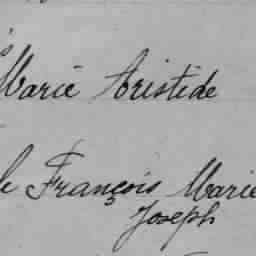 Marie Aristide
François Marie
Joseph